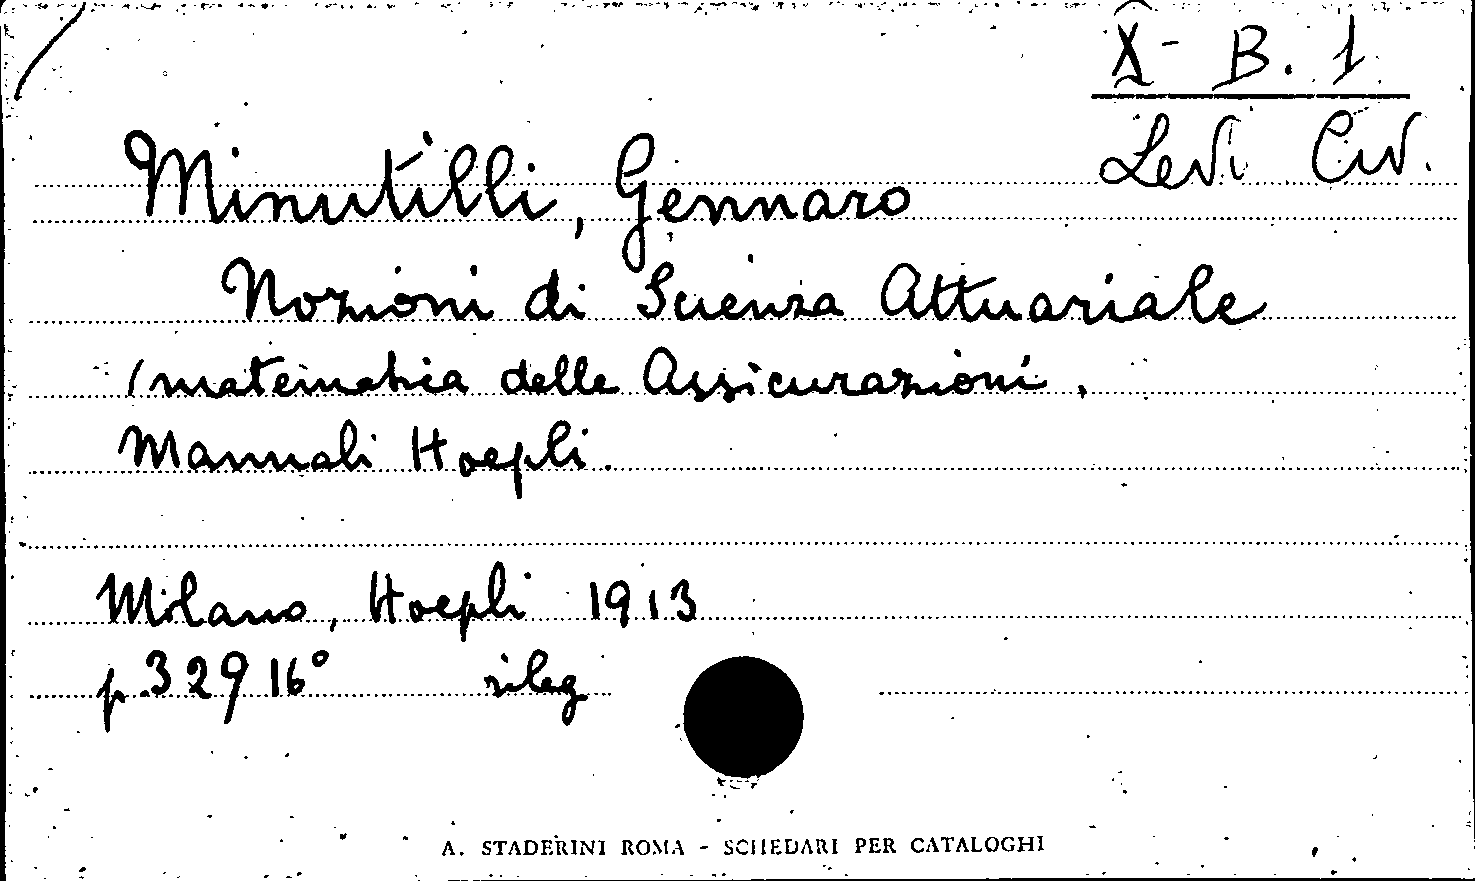 X - B. 1
Levi Civ.
Minutilli, Gennaro
Nozioni di Scienza Attuariale
(matematica delle Assicurazioni.
Manuali Hoepli.
Milano, Hoepli 1913
p. 329 16° rileg
A. STADERINI ROMA - SCHEDARI PER CATALOGHI